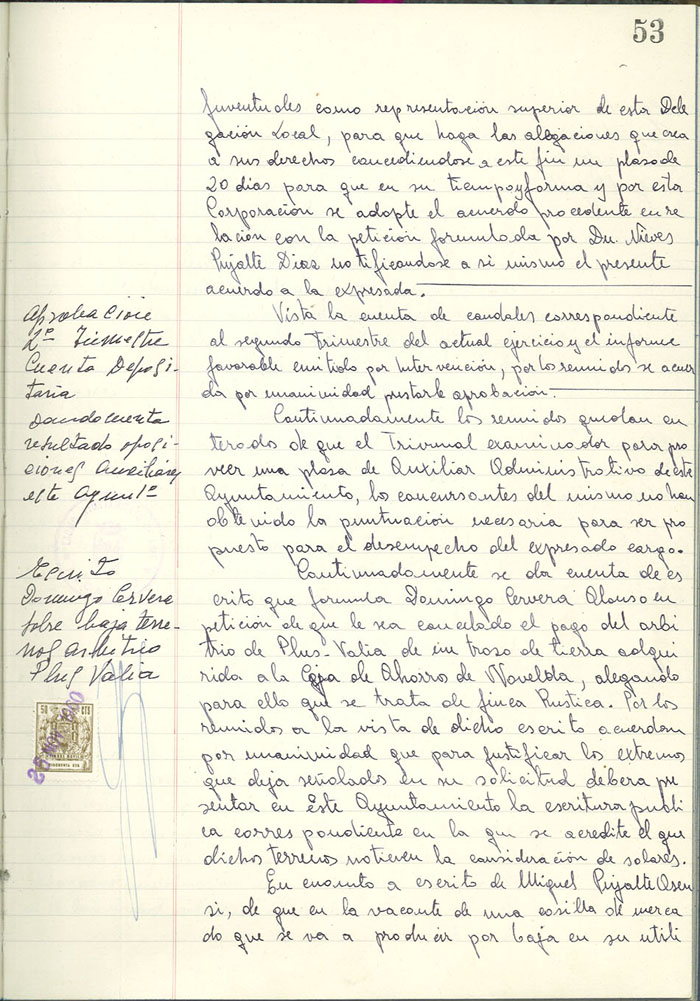 53
Juventudes como representación superior de esta Dele
gación Local, para que haga las alegaciones que crea
a sus derechos concediendose a este fin un plaso de
20 dias para que en su tiempo y forma y por esta
Corporación se adopte el acuerdo procedente en re
lación con la petición formulada por Dn. Nieves
Pujalte Diaz notificandose a si mismo el presente
acuerdo a la expresada.
Aprobacion
2º Trimestre
Cuenta Deposi-
taria
Vista la cuenta de caudales correspondiente
al segundo Trimestre del actual ejercicio y el informe
favorable emitido por Intervención, por los reunidos se acuer
da por unanimidad prestarle aprobación.
Dando cuenta
resultado oposi-
ciones Auxiliares
este Ayunto
Continuadamente los reunidos quedan en
terados de que el Trivunal examinador para pro
veer una plasa de Auxiliar Administrativo de este
Ayuntamiento, los concursantes del mismo no han
obtenido la puntuación necesaria para ser pro
puesto para el desempeño del expresado cargo.
Escrito
Domingo Cervera
sobre baja terre-
nos arbitrio
Plus Valia
Continuadamente se da cuenta de es
crito que formula Domingo Cervera Alonso en
petición de que le sea cancelado el pago del arbi
trio de Plus-Valia de un troso de tierra adqui
rida a la Caja de Ahorros de Novelda, alegando
para ello que se trata de finca Rustica. Por los
reunidos a la vista de dicho escrito acuerdan
por unanimidad que para justificar los extremos
que deja señalados en su solicitud debera pre
sentar en Este Ayuntamiento la escritura publi
ca correspondiente en la que se acredite el que
dichos terrenos no tienen la consideración de solares.
En cuanto a escrito de Miguel Pujalte Asen
si, de que en la vacante de una casilla de merca
do que se va a producir por baja en su utili
50 CTS
25 NOV